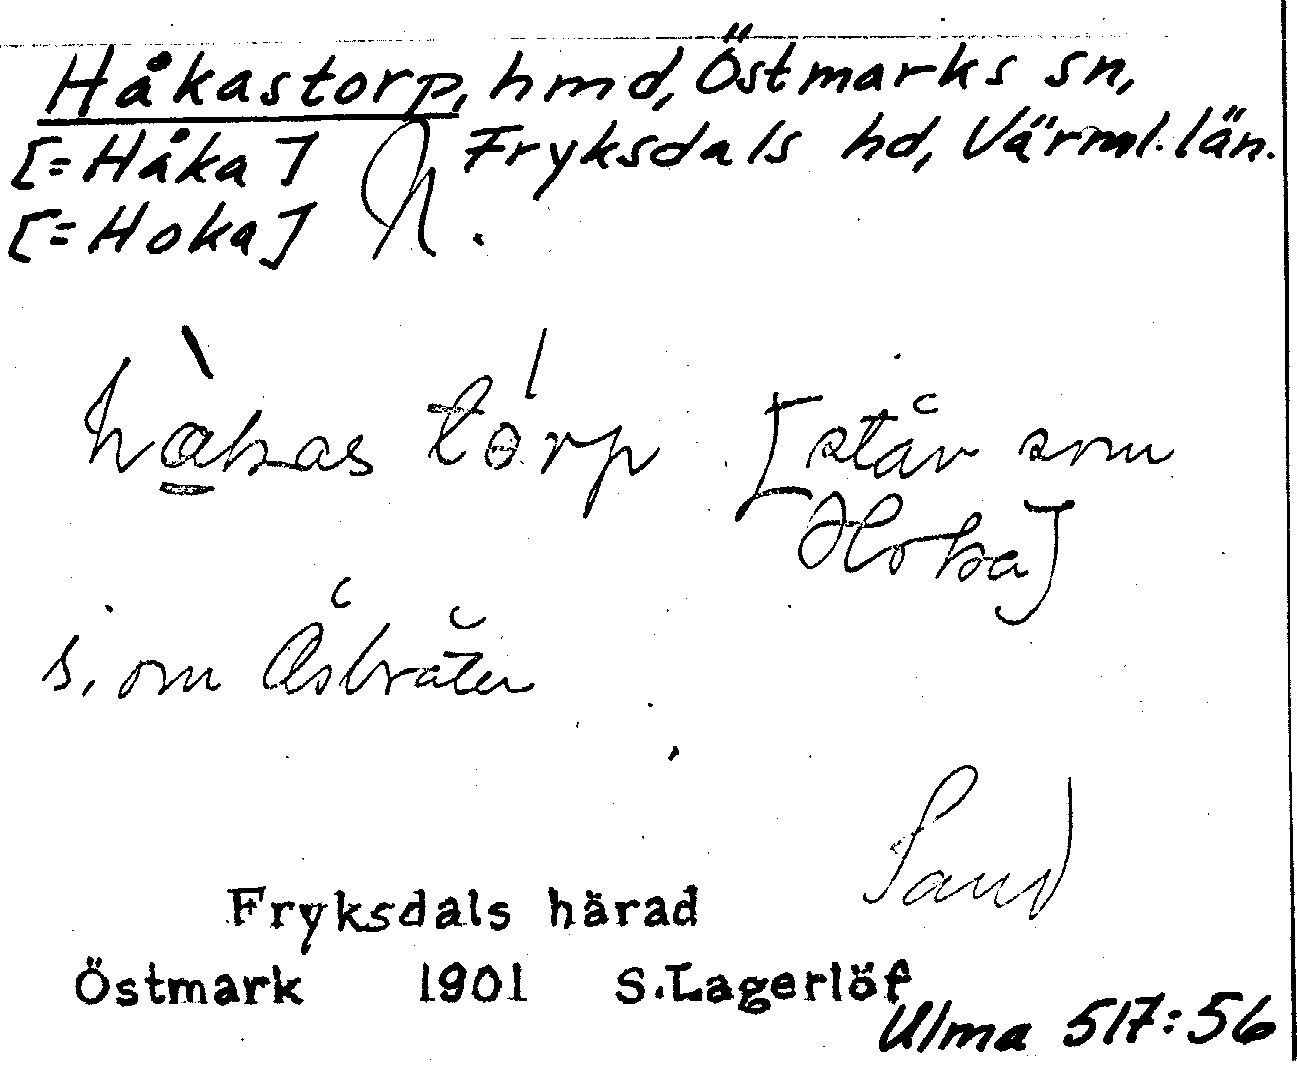 Håkastorp, hmd, Östmarks sn,
[=Håka] Fryksdals hd, Värml. län.
[=Hoka] N.
hàkas tórp [står som
Hoka]
s. om Åsbråten
Sand
Fryksdals härad
Östmark 1901 S.Lagerlöf
Ulma 517:56